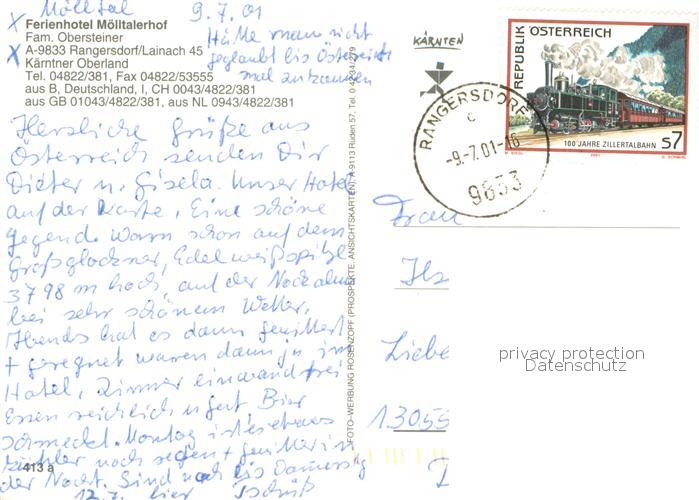 Mölltal 9.7.01
Hätte man nicht
geglaubt bis Österreich
mal zu kommen
Ferienhotel Mölltalerhof
Fam. Obersteiner
A-9833 Rangersdorf/Lainach 45
Kärntner Oberland
Tel. 04822/381, Fax 04822/53555
aus B, Deutschland, I, CH 0043/4822/381
aus GB 01043/4822/381, aus NL 0943/4822/381
Herzliche Grüße aus
Österreich senden Dir
Dieter u. Gisela. Unser Hotel
auf der Karte. Eine schöne
Gegend. Waren schon auf dem
Großglockner, Edelweißspitze
3798 m hoch, auf der Nockalm
bei sehr schönem Wetter,
Abends hat es dann gewittert
+ geregnet waren dann ja im
Hotel, Zimmer einwandfrei
Essen reichlich u. gut, Bier
schmeckt. Montag ist es etwas
kühler nach regen + gewitter in
der Nacht. Sind noch bis Donnerstag
12.7. hier Tschüß
413 a
FOTO-WERBUNG ROSENZOPF (PROSPEKTE, ANSICHTSKARTEN), A-9113 Ruden 57, Tel. 0 42 34/279
KÄRNTEN
REPUBLIK ÖSTERREICH
100 JAHRE ZILLERTALBAHN
S7
2001
RANGERSDORF
c
-9.-7.01-16
9833
Frau
Ils
Liebe
13055
privacy protection
Datenschutz